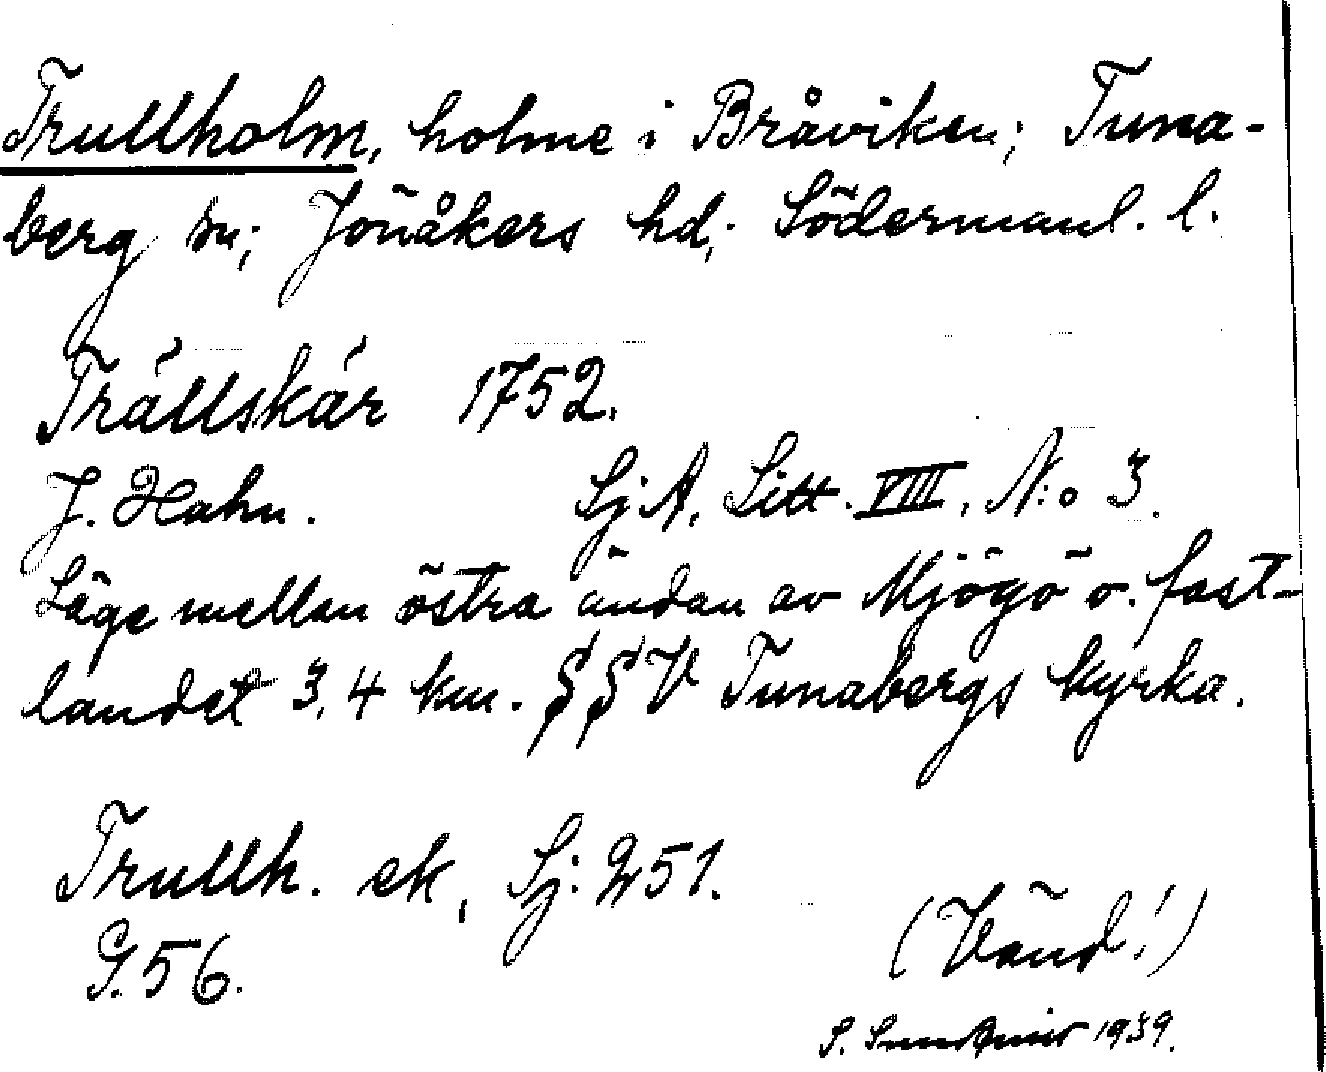 Trullholm, holme i Bråviken; Tuna-
berg sn; Jönåkers hd; Södermanl. l.
Trällskär 1752.
J. Hahn. Sj A, Litt. VIII, N:o 3.
Läge mellan östra ändan av Mjögö o. fast-
landet 3,4 km. V Tunabergs kyrka.
Trullh. ek, Sj: 251.
G. 56.
(Vänd!)
S. 1939.